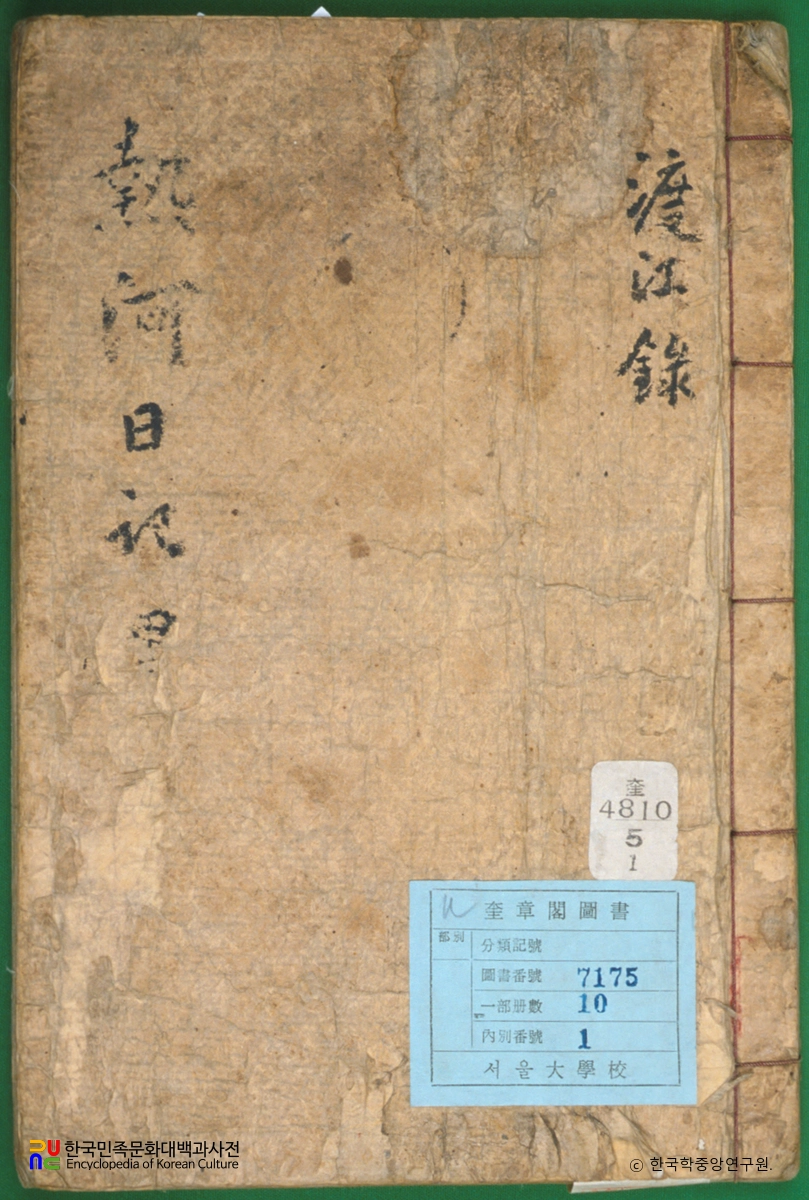 渡江錄
熱河日記
奎
4810
5
1
奎章閣圖書
部別
分類記號
圖書番號 7175
一部册數 10
內別番號 1
서울大學校
한국민족문화대백과사전
Encyclopedia of Korean Culture
ⓒ 한국학중앙연구원.